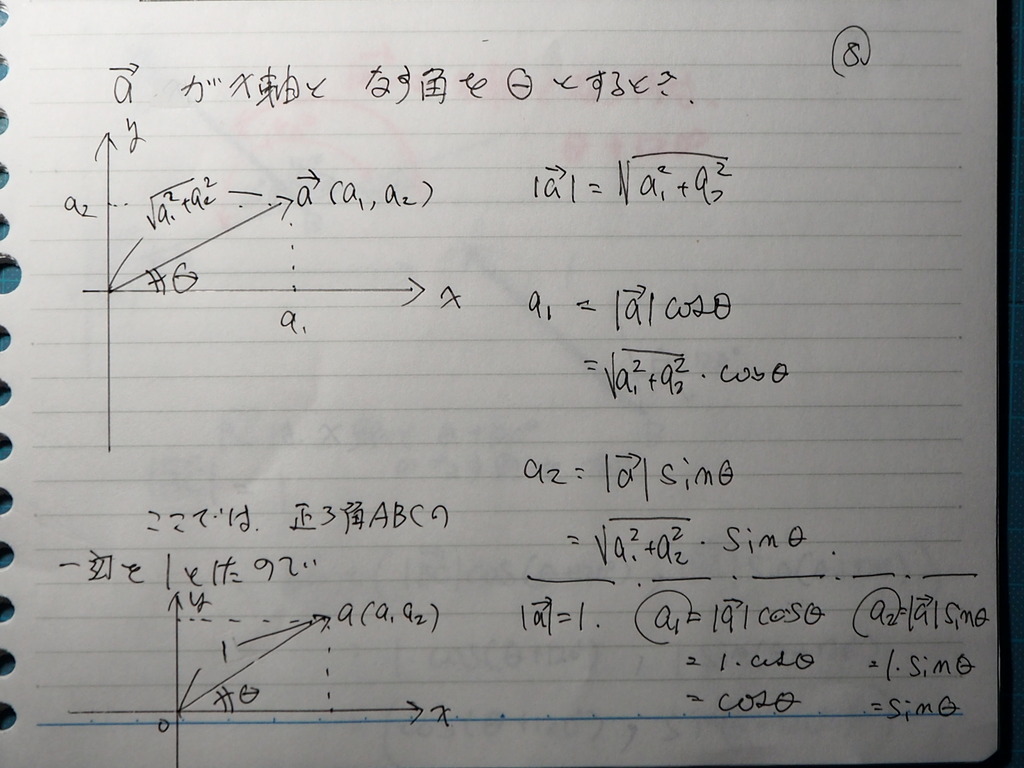 ⑧
a⃗ がx軸と なす角をθとするとき.
y
a₂
√a₁²+a₂²
a⃗(a₁,a₂)
θ
x
a₁
|a⃗| = √a₁²+a₂²
a₁ = |a⃗| cosθ
= √a₁²+a₂² · cosθ
a₂ = |a⃗| sinθ
= √a₁²+a₂² · sinθ.
ここでは. 正3角ABCの
一辺を1としたので
y
a(a₁a₂)
1
θ
0
x
|a⃗|=1. a₁=|a⃗|cosθ a₂=|a⃗|sinθ
= 1·cosθ =1·sinθ
= cosθ =sinθ